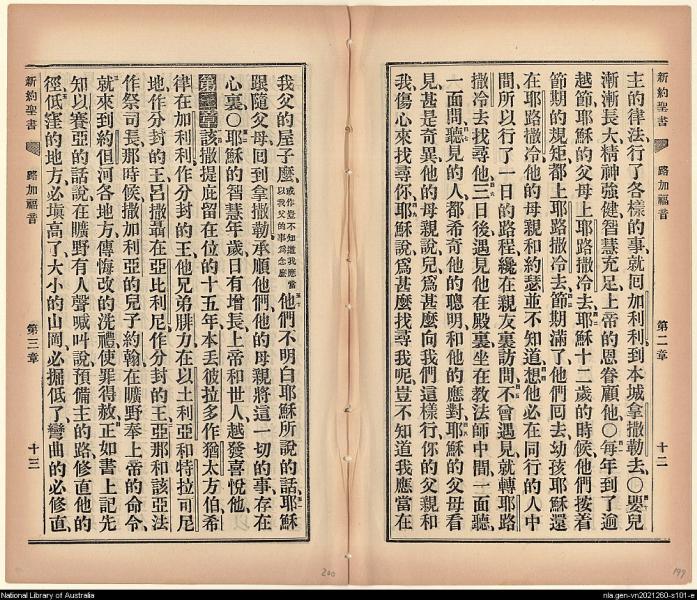 新約聖書 路加福音 第二章 十二
主的律法、行了各樣的事、就回加利利到本城拿撒勒去、〇嬰兒
漸漸長大、精神強健、智慧充足、上帝的恩眷顧他、〇每年到了逾
越節、耶穌的父母上耶路撒冷去、耶穌十二歲的時候、他們按着
節期的規矩、都上耶路撒冷去、節期滿了、他們回去、幼孩耶穌還
在耶路撒冷、他的母親和約瑟並不知道、想他必在同行的人中
間、所以行了一日的路程、纔在親友裏訪問、不曾遇見、就轉耶路
撒冷去找尋他、三日後遇見他在殿裏、坐在教法師中間、一面聽、
一面問、聽見的人、都希奇他的聰明、和他的應對、耶穌的父母看
見、甚是奇異、他的母親說、兒爲甚麼向我們這樣行、你的父親和
我傷心來找尋你、耶穌說、爲甚麼找尋我呢、豈不知道我應當在
新約聖書 路加福音 第三章 十三
我父的屋子麼、或作豈不知道我應當以我父的事爲念麼他們不明白耶穌所說的話、耶穌
跟隨父母回到拿撒勒、承順他們、他的母親將這一切的事、存在
心裏、〇耶穌的智慧年歲日有增長、上帝和世人、越發喜悅他、
第三章該撒提庇留在位的十五年、本丟彼拉多作猶太方伯、希
律在加利利作分封的王、他兄弟腓力在以土利亞和特拉可尼
地作分封的王、呂撒聶在亞比利尼作分封的王、亞那和該亞法
作祭司長、那時候撒加利亞的兒子約翰在曠野、奉上帝的命令、
就來到約但河各地方、傳悔改的洗禮、使罪得赦、正如書上記先
知以賽亞的話說、在曠野有人聲喊叫說、預備主的路、修直他的
徑、低窪的地方、必填高了、大小的山岡、必掘低了、彎曲的必修直、
200
199
National Library of Australia
nla.gen-vn2021260-s101-e